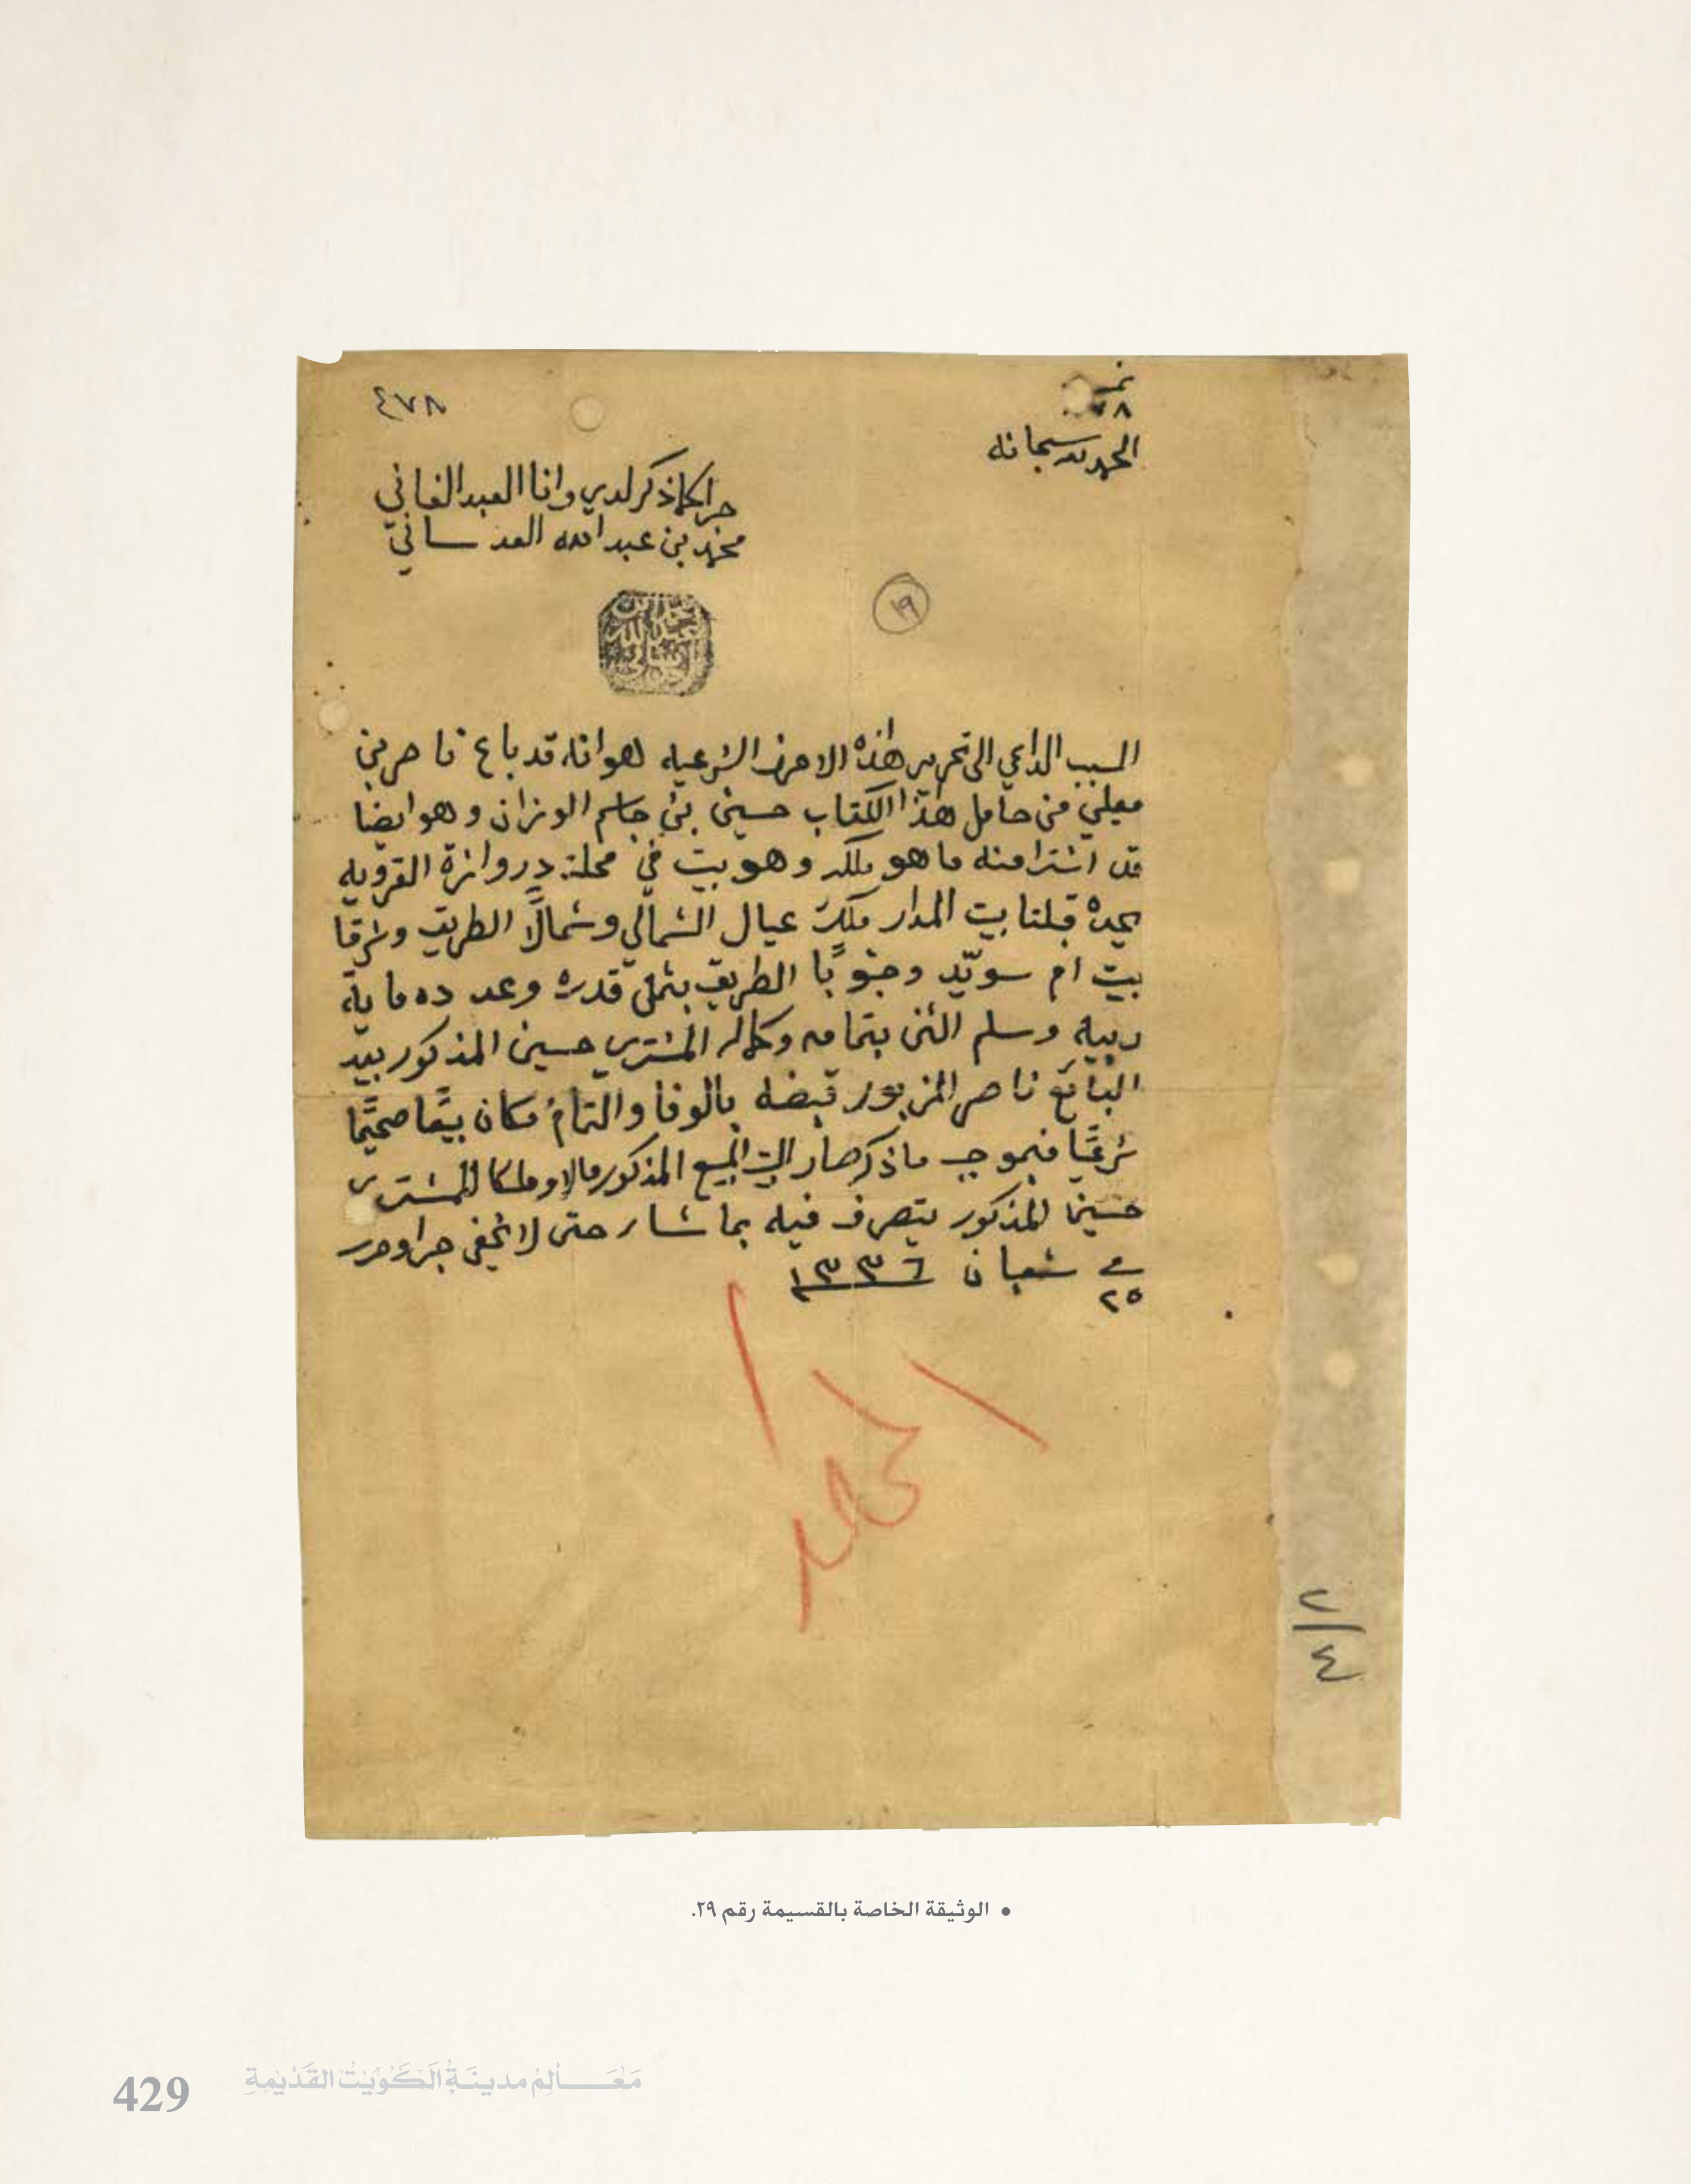 نمرة
٧٨
٤٧٨
الحمد لله سبحانه
جرا كما ذكر لدي وانا العبد الفاني
محمد بن عبدالله العدساني
١٩
السبب الداعي الى تحرير هذه الاحرف الشرعيه هو انه قد باع ناصر بن
معلي من حامل هذا الكتاب حسين بن جاسم الوزان وهو ايضا
قد اشترا منه ما هو ملكه وهو بيت في محلة دروازة القرويه
يحده قبلتا بيت المدار ملك عيال الشمالي وشمالًا الطريق وشرقا
بيت ام سويّد وجنوبًا الطريق بثمن قدره وعدده ماية
ربيه وسلم الثمن بتمامه وكماله المشتري حسين المذكور بيد
البائع ناصر المزبور قبضه بالوفا والتمام فكان بيعًا صحيحًا
شرعيًا فبموجب ما ذكر صار البيت المبيع المذكور مالا وملكا للمشتري
حسين المذكور يتصرف فيه بما شاء حتى لا يخفى جرا وحرر
في شعبان ١٣٣٦
٢٥
الحمد
٢/٤
• الوثيقة الخاصة بالقسيمة رقم ٢٩.
429 مَعَالِمُ مدينَةِ الكُوَيْتِ القَدِيمَةِ